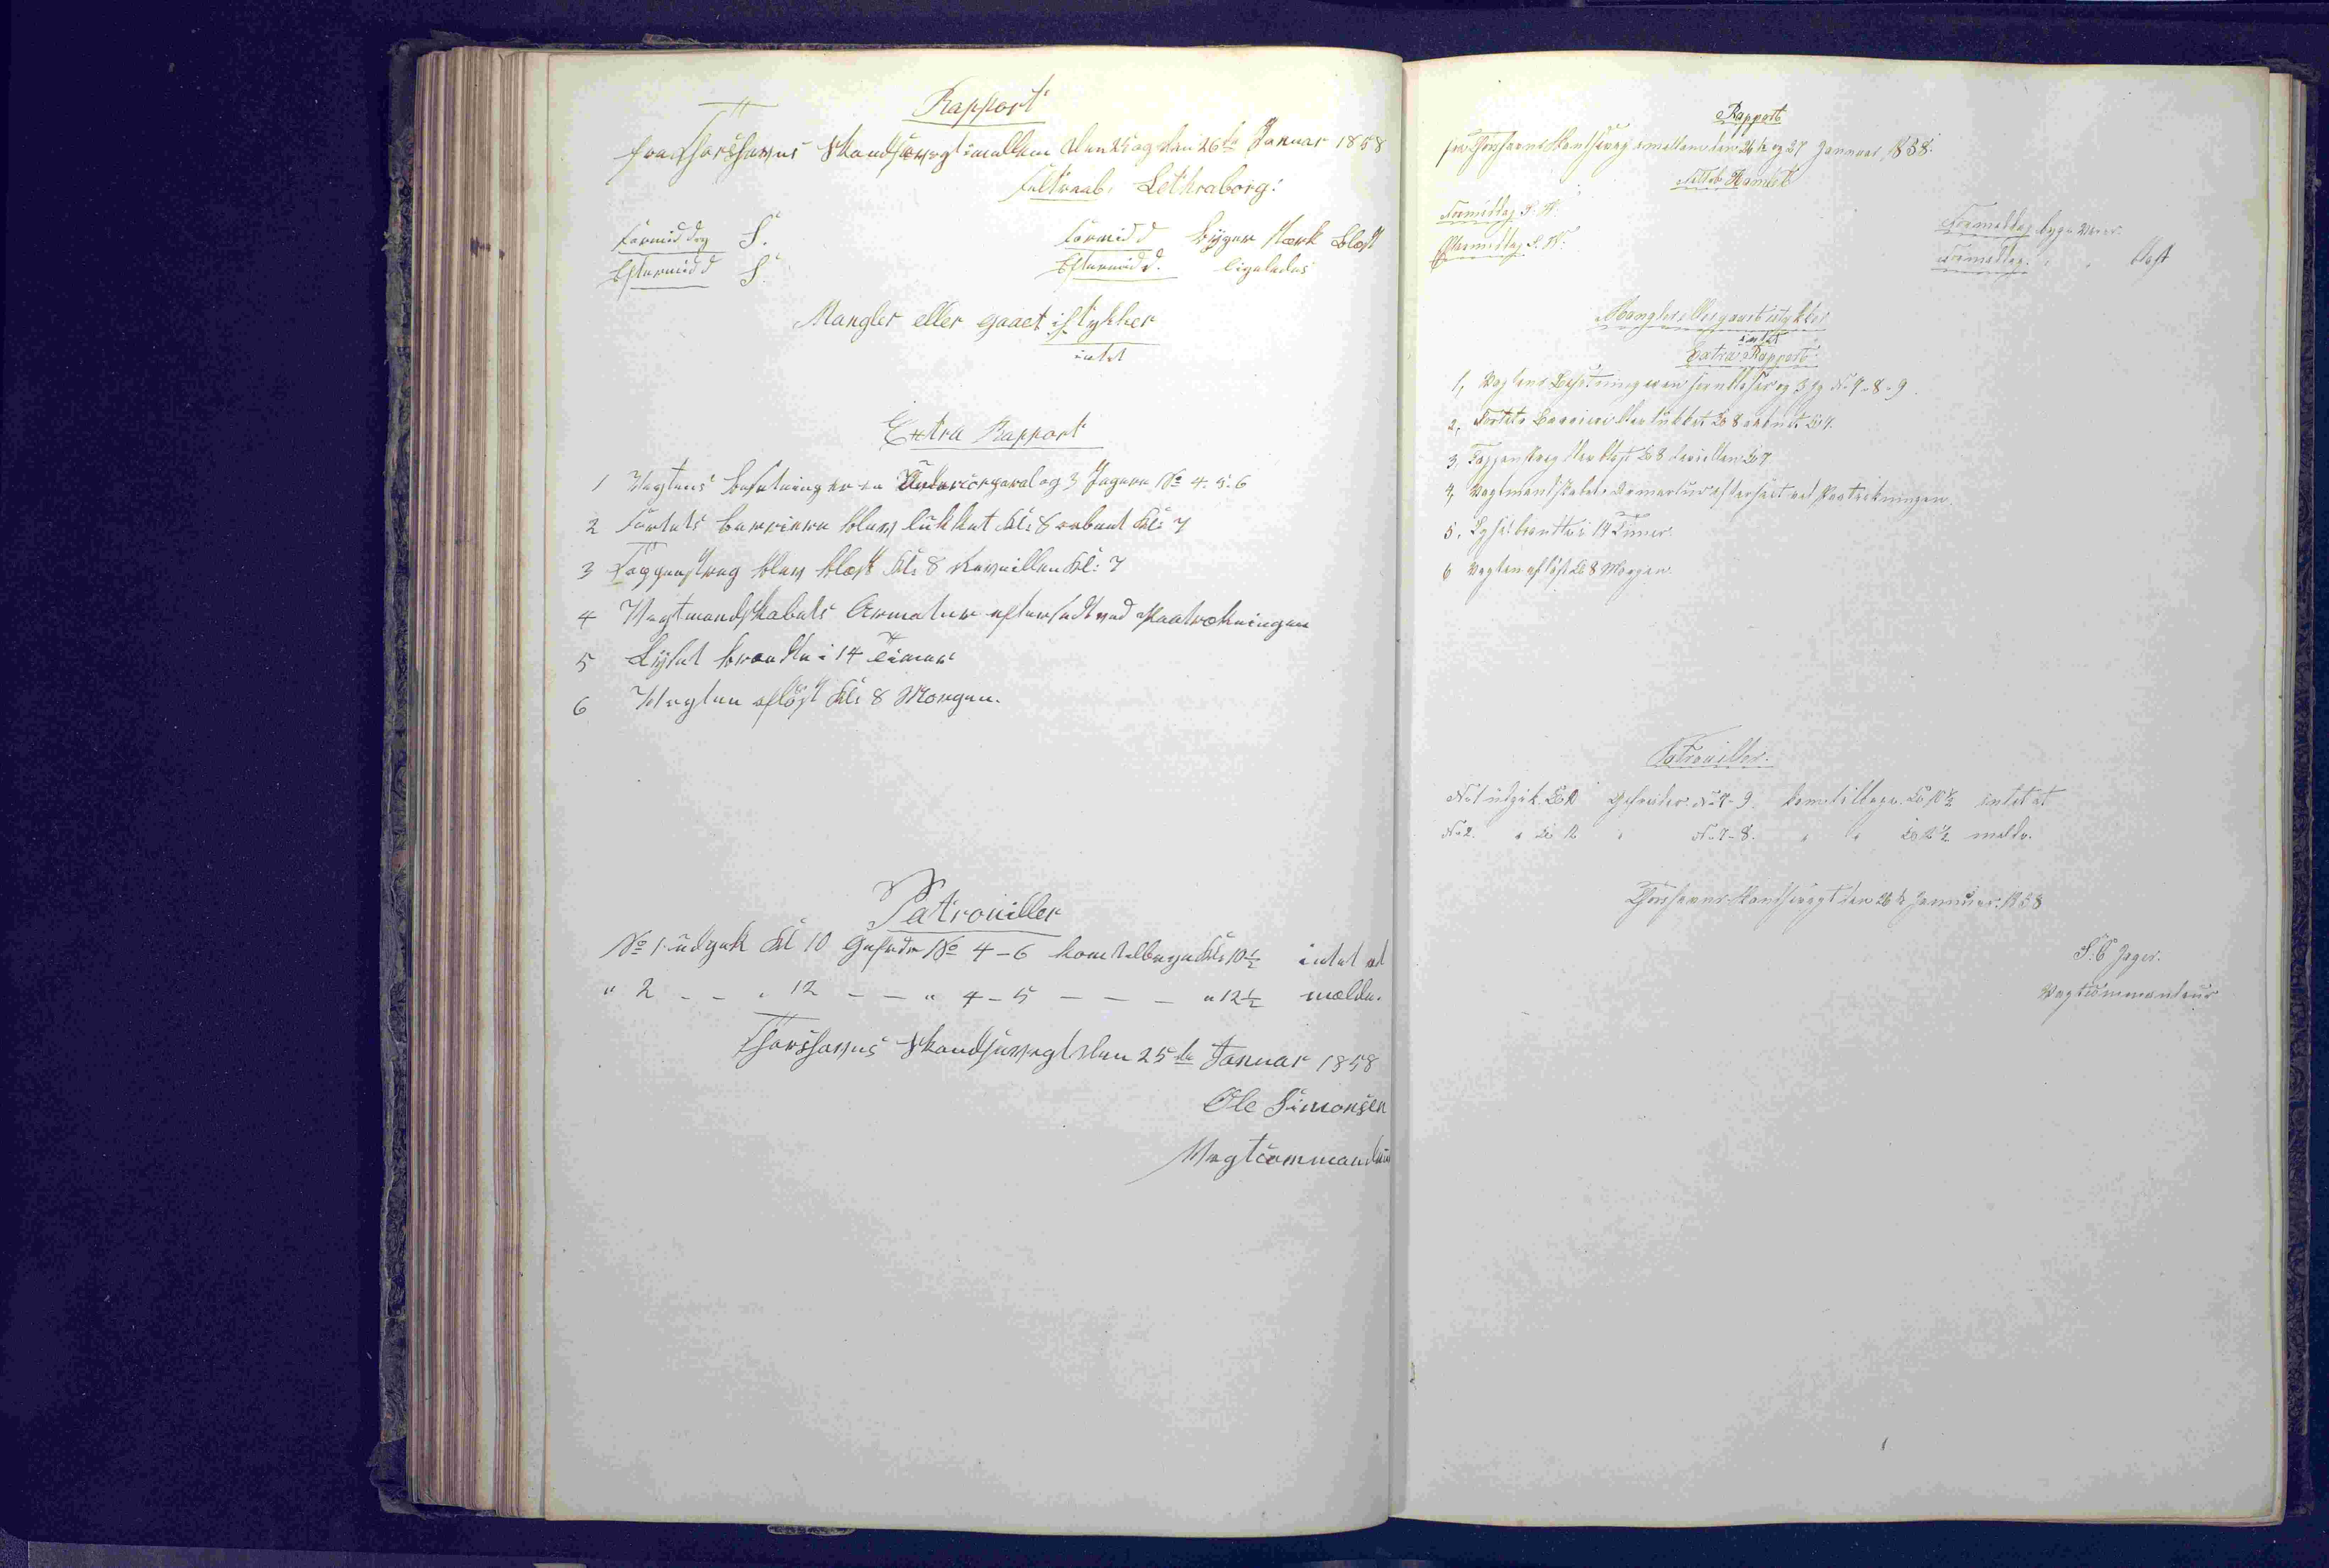 Rapport
fra Thorshavns Skandsevagt imellem den 25 og den 26de Januar 1858
Feltraab: Lethraborg.
Formiddag S. Formidd Byger stærk Blæst
Eftermidd S. Eftermidd. ligeledes
Mangler eller gaaet istykker
intet
Extra Rapport
1 Vagtens Besætning er en Undercorporal og 3 Jægere No 4. 5. 6
2 Fortets Barriere blev lukket Kl: 8 aabnet Kl: 7
3 Tappenstreg blev blæst Kl: 8 Reveillen Kl: 7
4 Vagtmandskabets Armatur efterseet ved Paatrækningen
5 Lyset brændte i 14 Timer
6 Vagten afløst Kl: 8 Morgen.
Patrouiller
No 1 udgik Kl 10 Gefreder No 4-6 kom tilbage Kl: 10½ intet at
" 2 - - " 12 - - " 4-5 - - - " 12½ melde.
Thorshavns Skandsevagt den 25de Januar 1858
Ole Simonsen
Vagtcommandeur
Rapport
fra Thorshavns Skandsevagt imellem den 26de og 27 Januar 1858.
Feltrb. Hamlet
Formiddag S. W. Formiddag byge Veir.
Eftermiddag S. W. " " Blæst
Mangler eller gaaet istykker
intet
Extra Rapport.
1, Vagtens Besætning er en og 3 Jg No 7-8-9
2, Fortets Barriere blev lukket Kl 8 aabnet Kl 7.
3, Tappenstreg blev blæst Kl 8 Reveillen Kl 7
4, Vagtmandskabets Armatur efterseet ved Paatrækningen.
5, Lyset brændte i 14 Timer.
6 Vagten afløst Kl 8 Morgen.
Patrouiller.
No 1 udgik Kl 10 Gefreider No 7-9. kom tilbage Kl 10½ intet at
No 2. " Kl 12 " No 7-8. " " Kl 12½ melde.
Thorshavns Skandsevagt den 26de Januar 1858
Vagtcommandeur